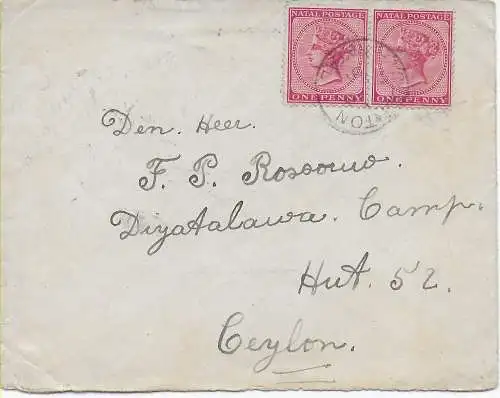 NATAL POSTAGE NATAL POSTAGE
ONE PENNY ONE PENNY
TON
Den. Heer.
F. P. Rossouw.
Diyatalawa. Camp.
Hut. 52.
Ceylon.